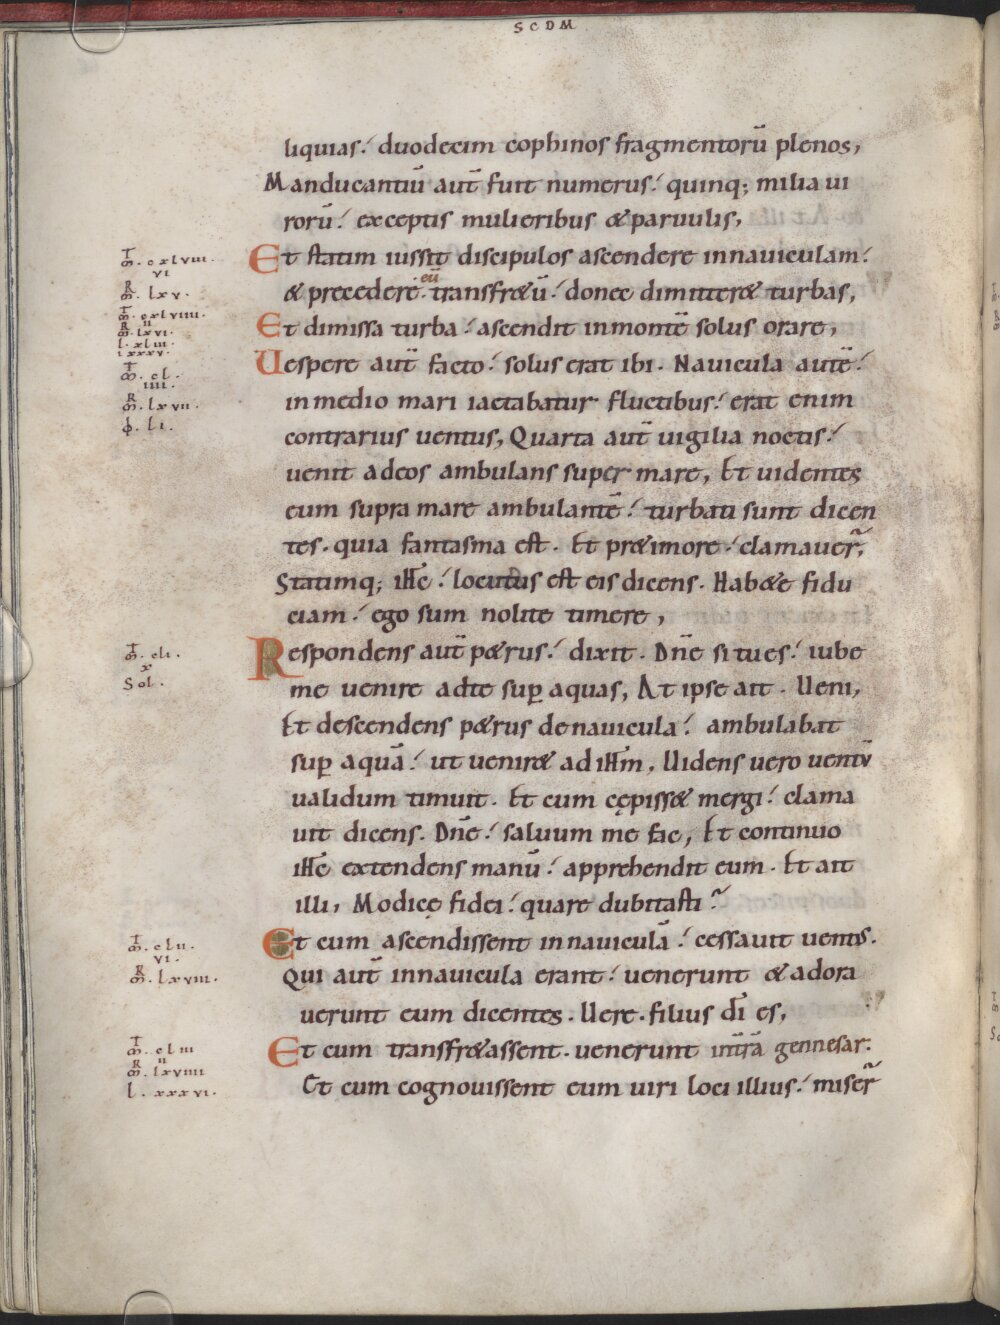 SCDM
liquias. duodecim cophinos fragmentorū plenos,
Manducantiū aut̄ fuit numerus. quinq; milia ui
rorū. exceptis mulieribus & paruulis,
Et statim iussit discipulos ascendere innauiculam.
& precedere eū transfr&ū. donec dimitter& turbas,
Et dimissa turba. ascendit inmontē solus orare,
Uespere aut̄ facto. solus erat ibi. Nauicula autē.
inmedio mari iactabatur fluctibus. erat enim
contrarius uentus, Quarta aut̄ uigilia noctis.
uenit adeos ambulans super mare, Et uidentes
eum supra mare ambulantē. turbati sunt dicen
tes. quia fantasma est. Et pr&imore. clamauer̄,
Statimq; ih̄c. locutus est eis dicens. Hab&e fidu
ciam. ego sum nolite timere,
Respondens aut̄ p&rus. dixit. Dn̄e situes. iube
me uenire adte sup̱ aquas, At ipse ait. Ueni,
Et descendens p&rus denauicula. ambulabat
sup̱ aquā. ut uenir& ad ih̄m, Uidens uero uentū
ualidum timuit. Et cum cępiss& mergi. clama
uit dicens. Dn̄e. saluum me fac, Et continuo
ih̄c extendens manū. apprehendit eum. Et ait
illi, Modicę fidei. quare dubitasti?
Et cum ascendissent innauiculā. cessauit uentus.
Qui aut̄ innauicula erant. uenerunt & adora
uerunt eum dicentes. Uere. filius dī es,
Et cum transfr&assent. uenerunt intrā gennesar:
Et cum cognouissent eum uiri loci illius. miser̄
m̄. cxlviii.
vi
m̄. lxv.
m̄. cxlviiii.
ii
m̄. lxvi.
l. xliii.
lxxxv.
m̄. cl.
iiii.
m̄. lxvii.
li.
m̄. cli.
x
Sol.
m̄. clii.
vi.
m̄. lxviii.
m̄. cliii
ii
m̄. lxviiii
l. xxxvi.